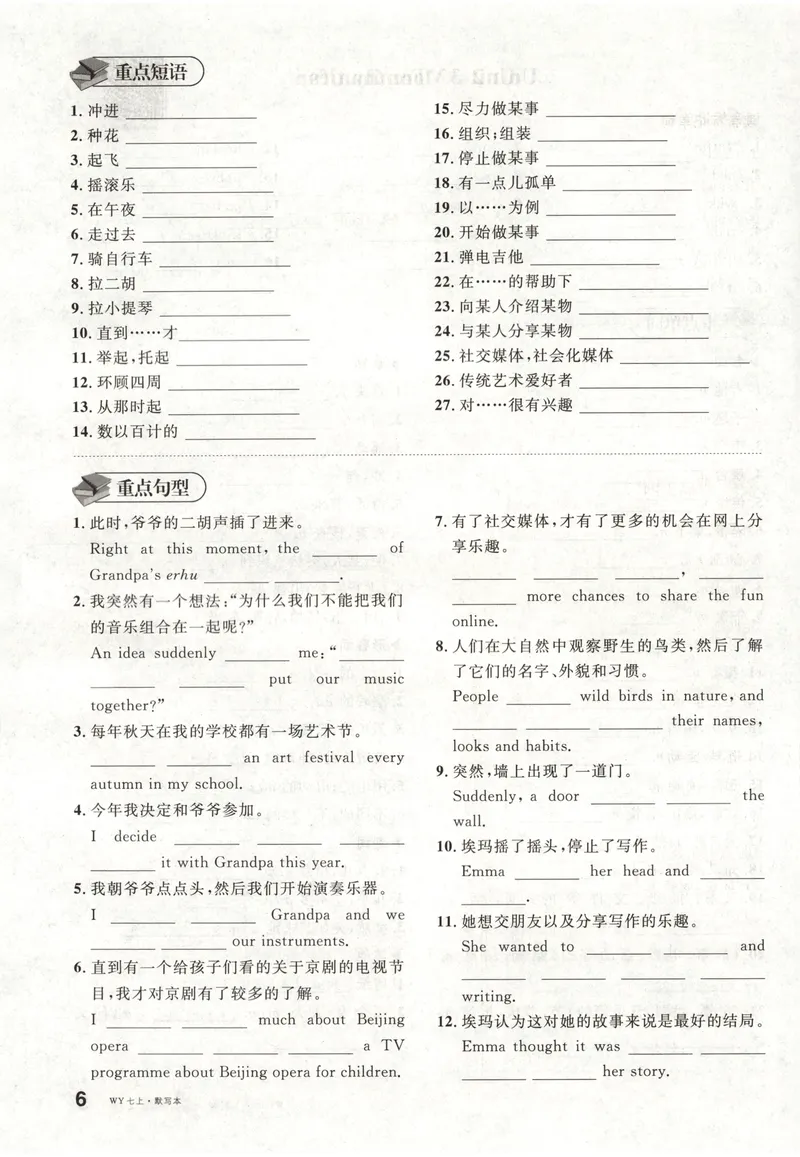 重点短语
1. 冲进 ____________
2. 种花 ____________
3. 起飞 ____________
4. 摇滚乐 ____________
5. 在午夜 ____________
6. 走过去 ____________
7. 骑自行车 ____________
8. 拉二胡 ____________
9. 拉小提琴 ____________
10. 直到……才____________
11. 举起,托起 ____________
12. 环顾四周 ____________
13. 从那时起 ____________
14. 数以百计的 ____________
15. 尽力做某事 ____________
16. 组织;组装 ____________
17. 停止做某事 ____________
18. 有一点儿孤单 ____________
19. 以……为例 ____________
20. 开始做某事 ____________
21. 弹电吉他 ____________
22. 在……的帮助下 ____________
23. 向某人介绍某物 ____________
24. 与某人分享某物 ____________
25. 社交媒体,社会化媒体 ____________
26. 传统艺术爱好者 ____________
27. 对……很有兴趣 ____________
重点句型
1. 此时,爷爷的二胡声插了进来。
Right at this moment, the ______ of
Grandpa's erhu ______ ______.
2. 我突然有一个想法:“为什么我们不能把我们
的音乐组合在一起呢?”
An idea suddenly ______ me: “______
______ ______ put our music
together?”
3. 每年秋天在我的学校都有一场艺术节。
______ ______ an art festival every
autumn in my school.
4. 今年我决定和爷爷参加。
I decide ______ ______ ______
______ it with Grandpa this year.
5. 我朝爷爷点点头,然后我们开始演奏乐器。
I ______ ______ Grandpa and we
______ ______ our instruments.
6. 直到有一个给孩子们看的关于京剧的电视节
目,我才对京剧有了较多的了解。
I ______ ______ much about Beijing
opera ______ ______ ______ a TV
programme about Beijing opera for children.
7. 有了社交媒体,才有了更多的机会在网上分
享乐趣。
______ ______ ______, ______
______ more chances to share the fun
online.
8. 人们在大自然中观察野生的鸟类,然后了解
了它们的名字、外貌和习惯。
People ______ wild birds in nature, and
______ ______ ______ their names,
looks and habits.
9. 突然,墙上出现了一道门。
Suddenly, a door ______ ______ the
wall.
10. 埃玛摇了摇头,停止了写作。
Emma ______ her head and ______
______.
11. 她想交朋友以及分享写作的乐趣。
She wanted to ______ ______ and
______ ______ ______ ______
writing.
12. 埃玛认为这对她的故事来说是最好的结局。
Emma thought it was ______ ______
______ ______ her story.
6 WY 七上·默写本